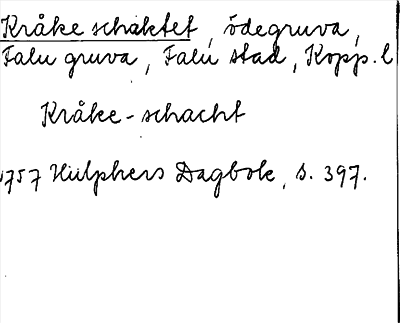 Kråke schaktet, ödegruva,
Falu gruva, Falu stad, Kopp. l
Kråke-schacht
1757 Hülphers Dagbok, s. 397.